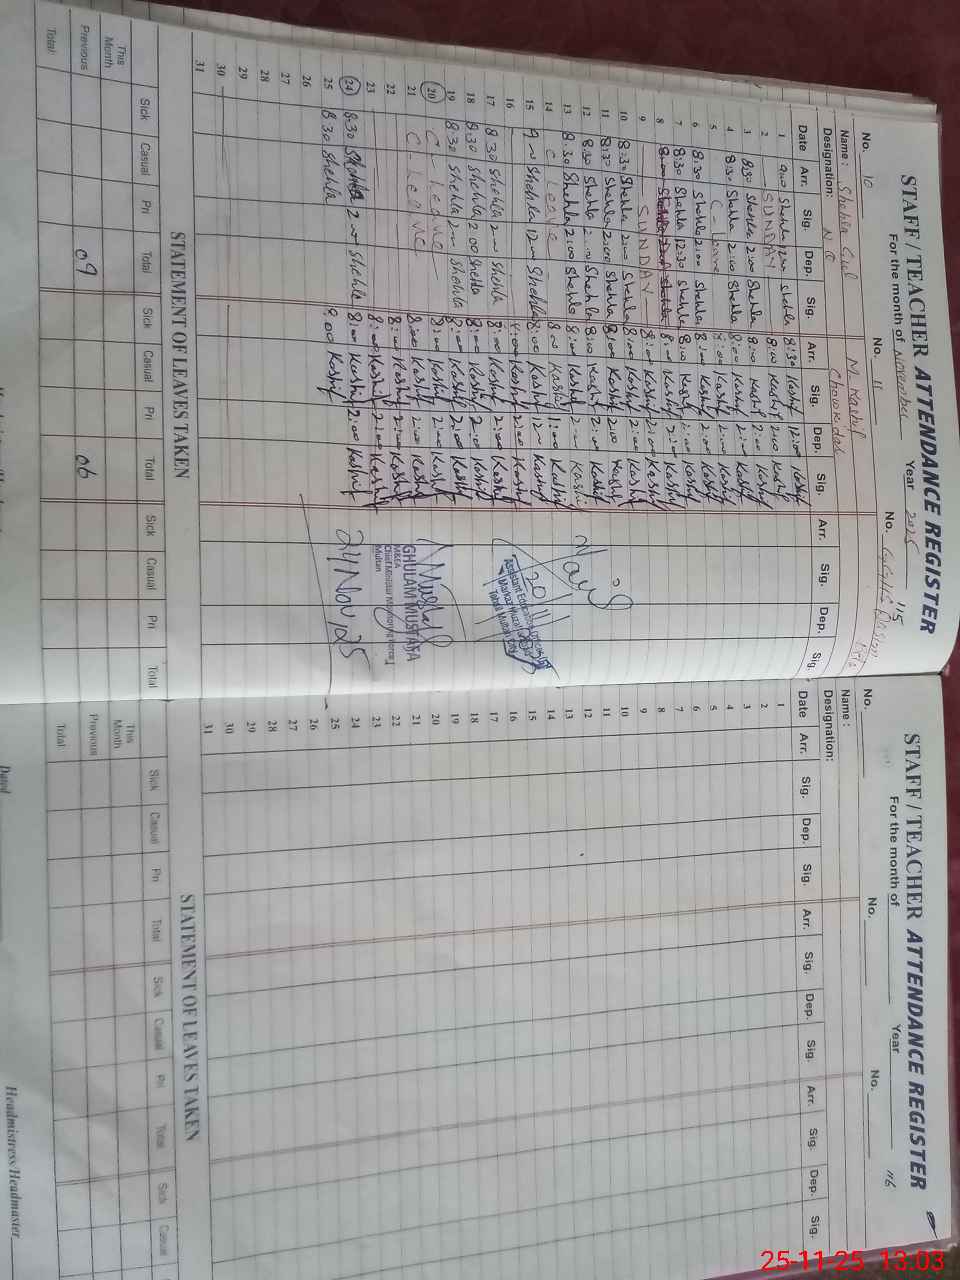 STAFF / TEACHER ATTENDANCE REGISTER
For the month of November Year 2025 115
No. 10 No. 11 No.
Name : Shehla Gul M. Kashif
Designation: N C Chowkidar
Date Arr. Sig. Dep. Sig. Arr. Sig. Dep. Sig. Arr. Sig. Dep. Sig.
1 9:00 Shehla 12:00 Shehla 8:30 Kashif 12:00 Kashif
2 SUNDAY 8:00 Kashif 2:00 Kashif
3 8:30 Shehla 2:00 Shehla 8:00 Kashif 2:00 Kashif
4 8:30 Shehla 2:00 Shehla 8:00 Kashif 2:00 Kashif
5 C-Leave 8:00 Kashif 2:00 Kashif
6 8:30 Shehla 2:00 Shehla 8:00 Kashif 2:00 Kashif
7 8:30 Shehla 12:30 Shehla 8:00 Kashif 12:00 Kashif
8 8:00 Kashif 2:00 Kashif
9 SUNDAY 8:00 Kashif 2:00 Kashif
10 8:30 Shehla 2:00 Shehla 8:00 Kashif 2:00 Kashif
11 8:30 Shehla 2:00 Shehla 8:00 Kashif 2:00 Kashif
12 8:30 Shehla 2:00 Shehla 8:00 Kashif 2:00 Kashif
13 8:30 Shehla 2:00 Shehla 8:00 Kashif 2:00 Kashif
14 C Leave 8:00 Kashif 1:00 Kashif
15 9:00 Shehla 12:00 Shehla 8:00 Kashif 12:00 Kashif
16 8:00 Kashif 2:00 Kashif
17 8:30 Shehla 2:00 Shehla 8:00 Kashif 2:00 Kashif
18 8:30 Shehla 2:00 Shehla 8:00 Kashif 2:00 Kashif
19 8:30 Shehla 2:00 Shehla 8:00 Kashif 2:00 Kashif
20 C-Leave 8:00 Kashif 2:00 Kashif
21 C-Leave 8:00 Kashif 2:00 Kashif
22 8:00 Kashif 2:00 Kashif
23 8:00 Kashif 2:00 Kashif
24 8:30 Shehla 2:00 Shehla 8:00 Kashif 2:00 Kashif
25 8:30 Shehla 8:00 Kashif
26
27
28
29
30
31
20/11
Assistant Education Officer
Markaz
Tehsil Multan City
GHULAM MUSTAFA
M&EA
Chief Minister Monitoring Force
Multan
24 Nov, 25
STATEMENT OF LEAVES TAKEN
Sick Casual Pri Total Sick Casual Pri Total Sick Casual Pri Total
This Month
Previous 09 06
Total
STAFF / TEACHER ATTENDANCE REGISTER
For the month of Year 116
No. No. No.
Name :
Designation:
Date Arr. Sig. Dep. Sig. Arr. Sig. Dep. Sig. Arr. Sig. Dep. Sig.
1
2
3
4
5
6
7
8
9
10
11
12
13
14
15
16
17
18
19
20
21
22
23
24
25
26
27
28
29
30
31
STATEMENT OF LEAVES TAKEN
Sick Casual Pri Total Sick Casual Pri Total Sick Casual
This Month
Previous
Total
Dated
Headmistress/Headmaster
25-11-25 13:03